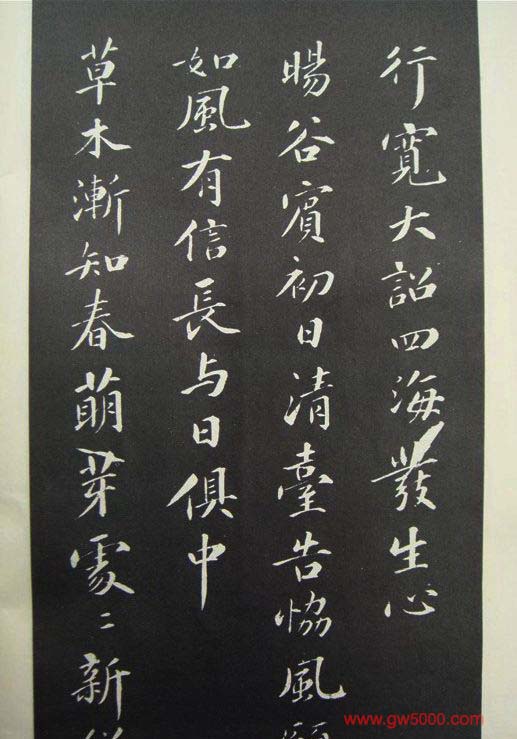 行寬大詔四海發生心
暘谷賓初日清臺告協風願
如風有信長與日俱中
草木漸知春萌芽處〻新從
www.gw5000.com